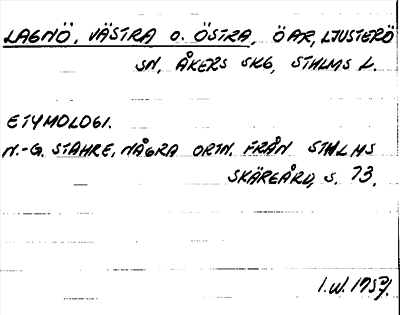 LAGNÖ, VÄSTRA O. ÖSTRA, ÖAR, LJUSTERÖ
SN, ÅKERS SKG, STHLMS L.
ETYMOLOGI.
N.-G. STAHRE, NÅGRA ORTN. FRÅN STHLMS
SKÄRGÅRD, S. 73.
I.W.